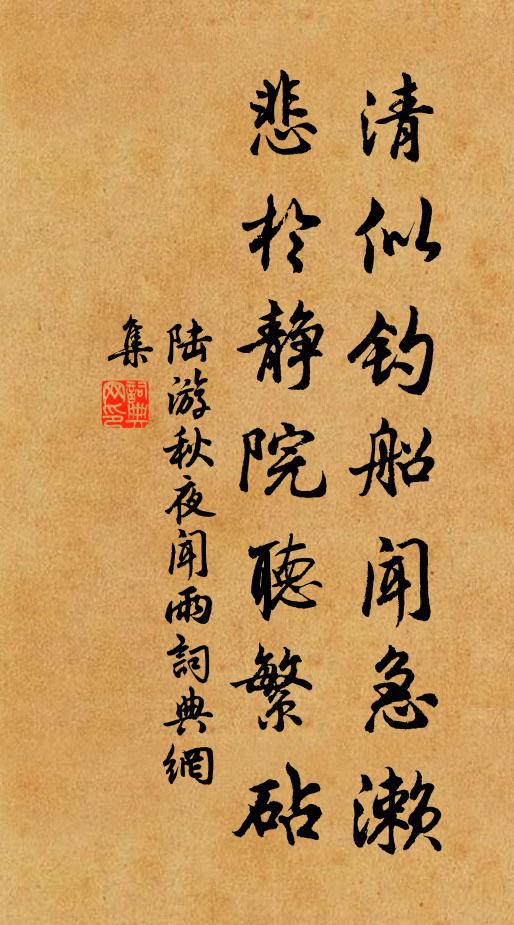 清似钓船闻急濑
悲於静院聽繁砧
陆游秋夜闻雨詞典網
集
詞典網印